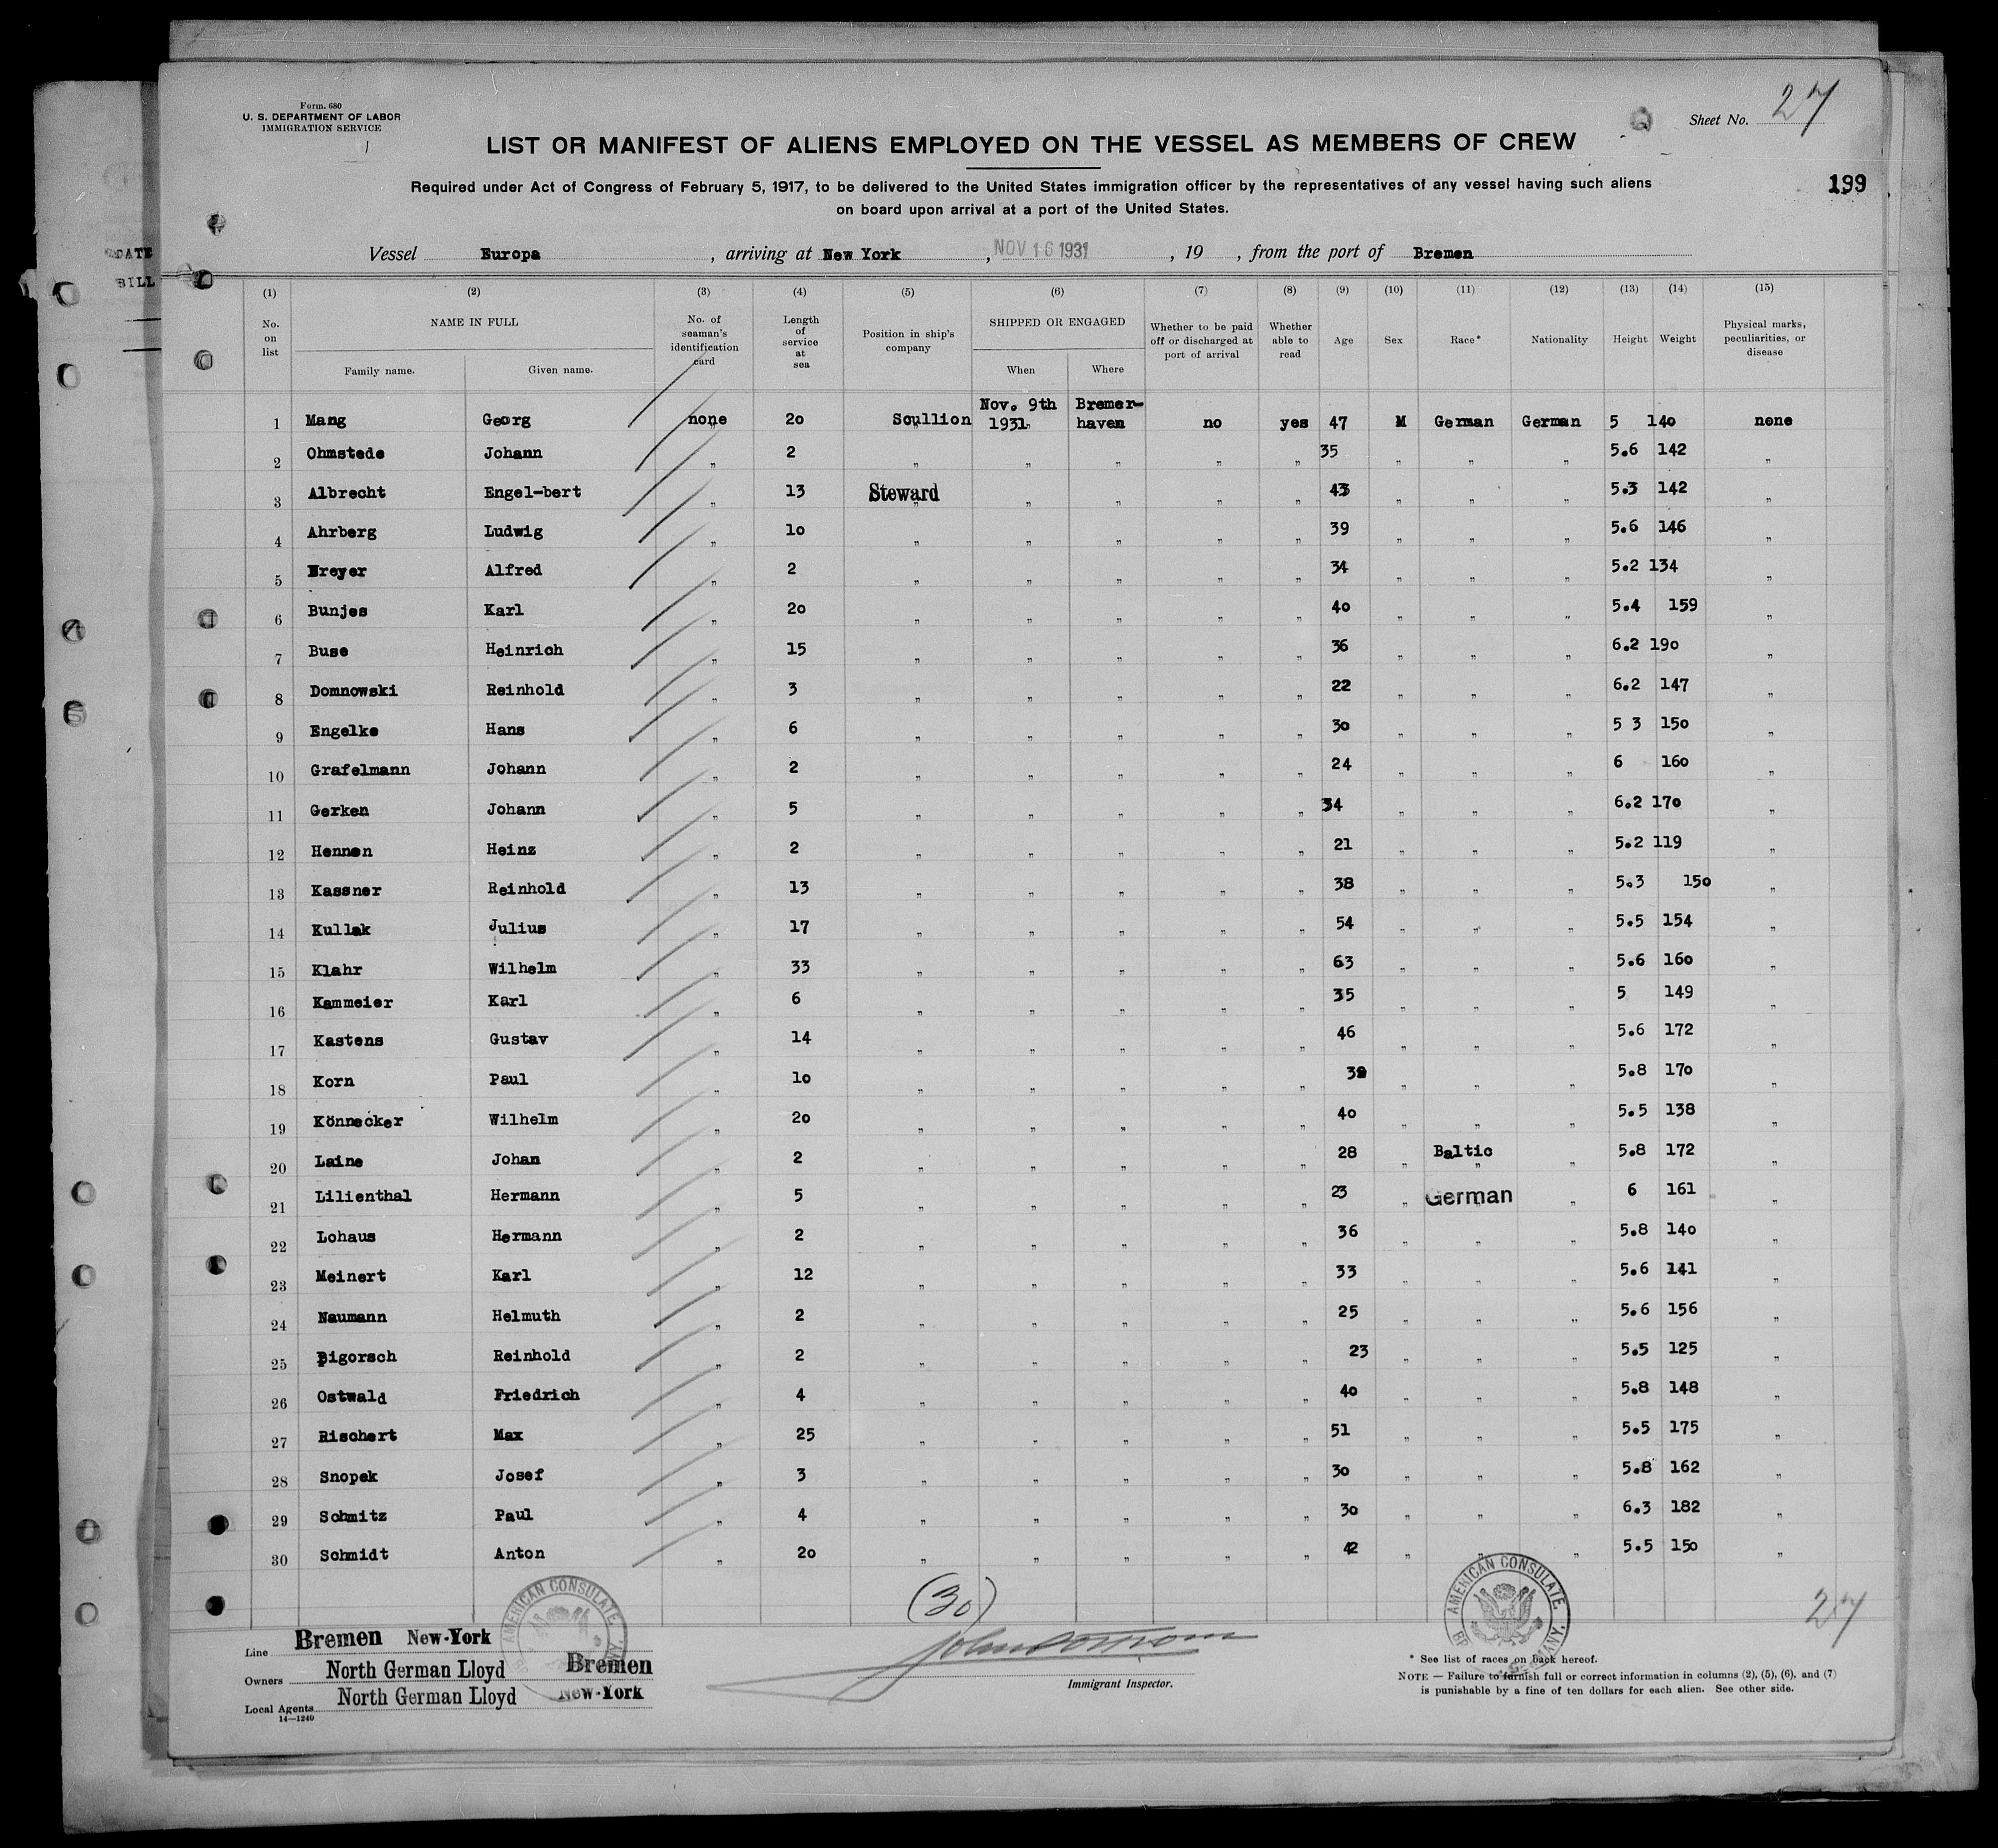 Form. 680
U. S. DEPARTMENT OF LABOR
IMMIGRATION SERVICE
Sheet No. 27
LIST OR MANIFEST OF ALIENS EMPLOYED ON THE VESSEL AS MEMBERS OF CREW
Required under Act of Congress of February 5, 1917, to be delivered to the United States immigration officer by the representatives of any vessel having such aliens
on board upon arrival at a port of the United States.
199
DATE
BILL
Vessel Europa , arriving at New York , NOV 16 1931 , 19 , from the port of Bremen
(1) (2) (3) (4) (5) (6) (7) (8) (9) (10) (11) (12) (13) (14) (15)
No. on list
NAME IN FULL
Family name. Given name.
No. of seaman's identification card
Length of service at sea
Position in ship's company
SHIPPED OR ENGAGED
When Where
Whether to be paid off or discharged at port of arrival
Whether able to read
Age
Sex
Race*
Nationality
Height
Weight
Physical marks, peculiarities, or disease
1 Mang Georg none 20 Scullion Nov. 9th 1931 Bremer-haven no yes 47 M German German 5 140 none
2 Ohmstede Johann " 2 " " " " " 35 " " " 5.6 142 "
3 Albrecht Engel-bert " 13 Steward " " " " 43 " " " 5.3 142 "
4 Ahrberg Ludwig " 10 " " " " " 39 " " " 5.6 146 "
5 reyer Alfred " 2 " " " " " 34 " " " 5.2 134 "
6 Bunjes Karl " 20 " " " " " 40 " " " 5.4 159 "
7 Buse Heinrich " 15 " " " " " 36 " " " 6.2 190 "
8 Domnowski Reinhold " 3 " " " " " 22 " " " 6.2 147 "
9 Engelke Hans " 6 " " " " " 30 " " " 5 3 150 "
10 Grafelmann Johann " 2 " " " " " 24 " " " 6 160 "
11 Gerken Johann " 5 " " " " " 34 " " " 6.2 170 "
12 Hennen Heinz " 2 " " " " " 21 " " " 5.2 119 "
13 Kassner Reinhold " 13 " " " " " 38 " " " 5.3 150 "
14 Kullak Julius " 17 " " " " " 54 " " " 5.5 154 "
15 Klahr Wilhelm " 33 " " " " " 63 " " " 5.6 160 "
16 Kammeier Karl " 6 " " " " " 35 " " " 5 149 "
17 Kastens Gustav " 14 " " " " " 46 " " " 5.6 172 "
18 Korn Paul " 10 " " " " " " " " 5.8 170 "
19 Könnecker Wilhelm " 20 " " " " " 40 " " " 5.5 138 "
20 Laine Johan " 2 " " " " " 28 " Baltic " 5.8 172 "
21 Lilienthal Hermann " 5 " " " " " 23 " German " 6 161 "
22 Lohaus Hermann " 2 " " " " " 36 " " " 5.8 140 "
23 Meinert Karl " 12 " " " " " 33 " " " 5.6 141 "
24 Naumann Helmuth " 2 " " " " " 25 " " " 5.6 156 "
25 Pigorsch Reinhold " 2 " " " " " 23 " " " 5.5 125 "
26 Ostwald Friedrich " 4 " " " " " 40 " " " 5.8 148 "
27 Rischert Max " 25 " " " " " 51 " " " 5.5 175 "
28 Snopek Josef " 3 " " " " " 30 " " " 5.8 162 "
29 Schmitz Paul " 4 " " " " " 30 " " " 6.3 182 "
30 Schmidt Anton " 20 " " " " " 42 " " " 5.5 150 "
(30)
27
AMERICAN CONSULATE
AMERICAN CONSULATE
Line Bremen New-York
Owners North German Lloyd Bremen
Local Agents North German Lloyd New-York
14—1240
Immigrant Inspector.
* See list of races on back hereof.
NOTE — Failure to furnish full or correct information in columns (2), (5), (6), and (7)
is punishable by a fine of ten dollars for each alien. See other side.